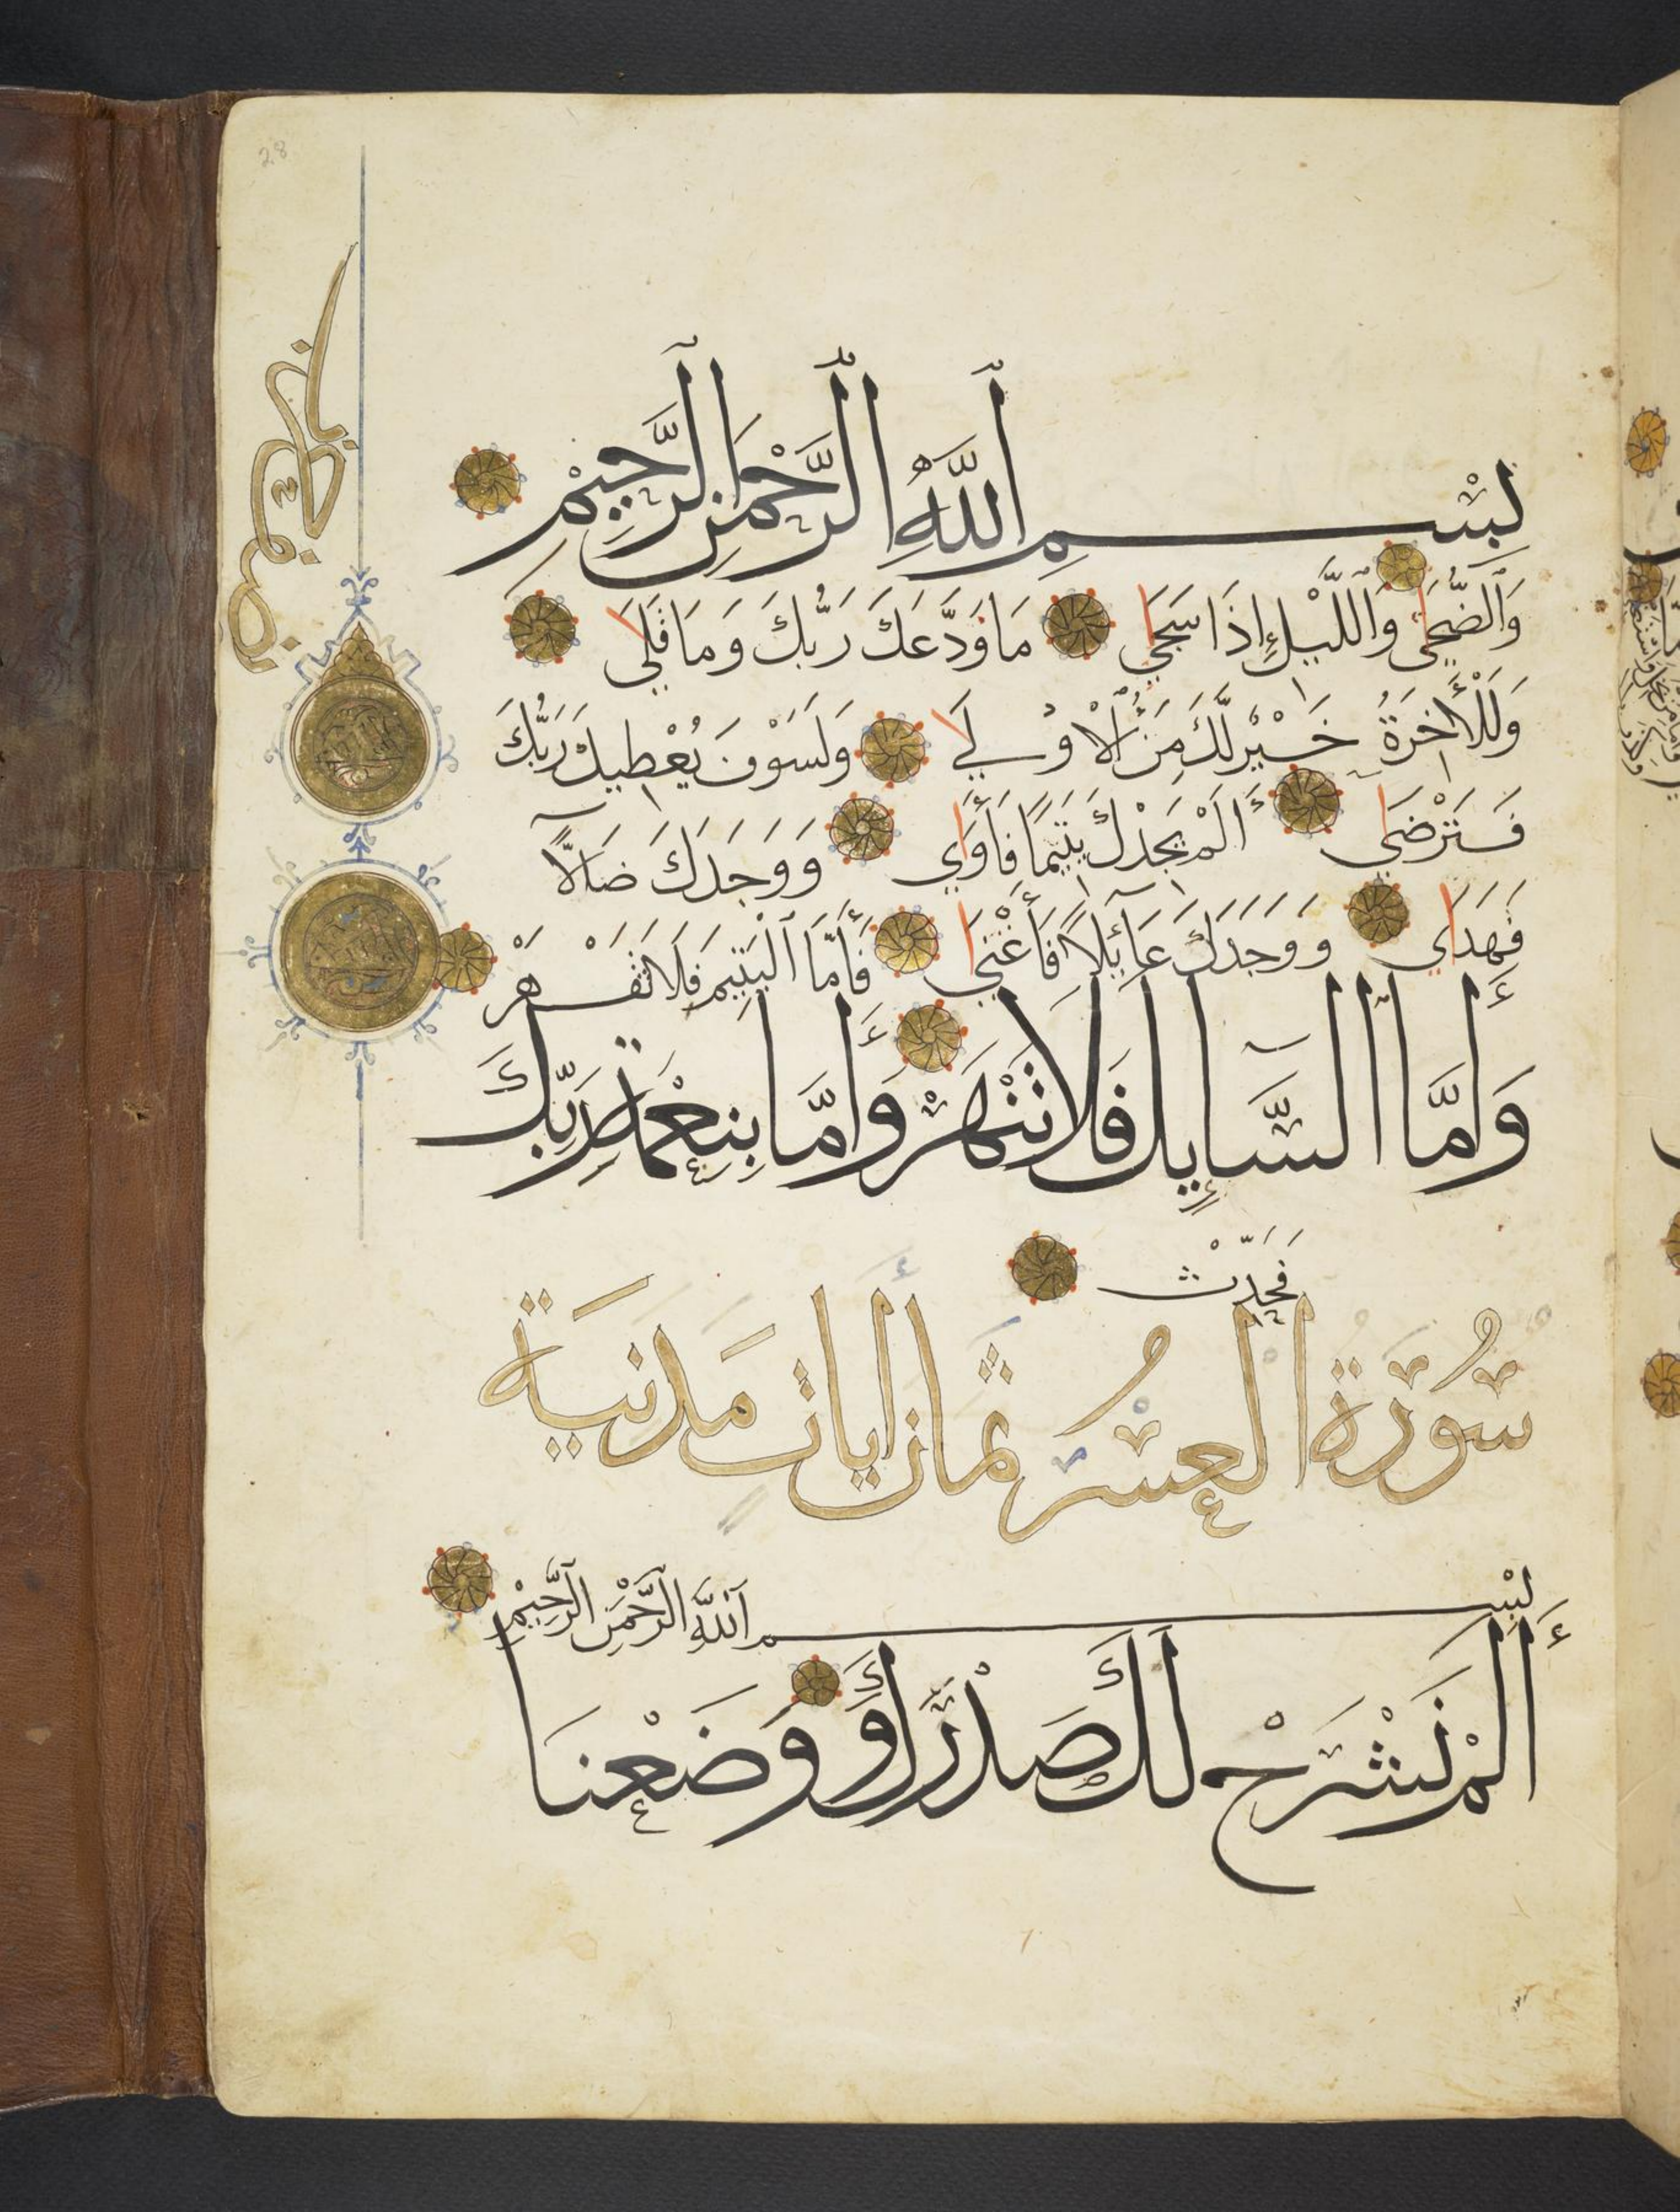 بِسْمِ ٱللَّهِ ٱلرَّحْمَٰنِ ٱلرَّحِيْمِ
وَٱلضُّحَىٰ وَٱللَّيْلِ إِذَا سَجَىٰ مَا وَدَّعَكَ رَبُّكَ وَمَا قَلَىٰ
وَلَلْأَخِرَةُ خَيْرٌ لَّكَ مِنَ ٱلْأُولَىٰ وَلَسَوْفَ يُعْطِيكَ رَبُّكَ
فَتَرْضَىٰ أَلَمْ يَجِدْكَ يَتِيمًا فَأَوَىٰ وَوَجَدَكَ ضَالًّا
فَهَدَىٰ وَوَجَدَكَ عَائِلًا فَأَغْنَىٰ فَأَمَّا ٱلْيَتِيمَ فَلَا تَقْهَرْ
وَأَمَّا السَّايِلَ فَلَا تَنْهَرْ وَأَمَّا بِنِعْمَةِ رَبِّكَ
فَحَدِّثْ
سُورَة العسر ثمان ايات مَدنيَة
بِسْمِ ٱللَّهِ ٱلرَّحْمَٰنِ ٱلرَّحِيْمِ
أَلَمْ نَشْرَحْ لَكَ صَدْرَكَ وَوَضَعْنَا
28